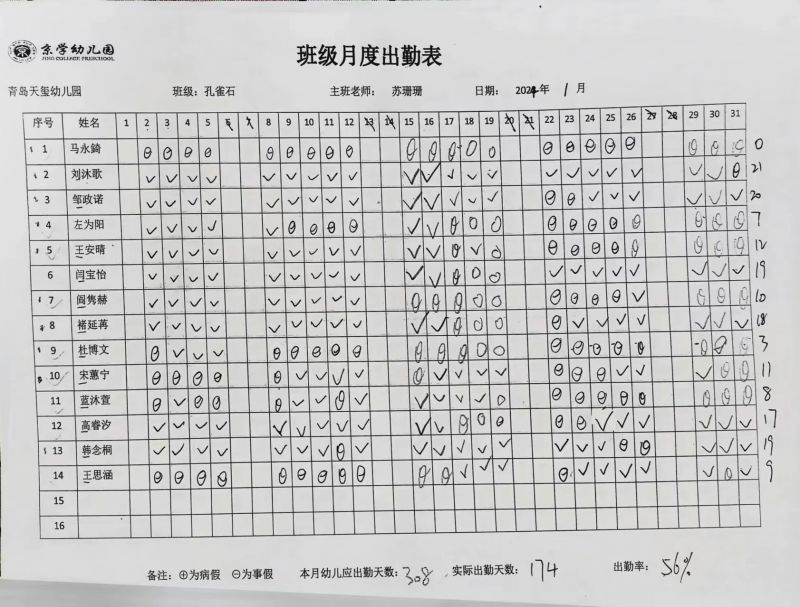 京学幼儿园
JING COLLEGE PRESCHOOL
班级月度出勤表
青岛天玺幼儿园 班级：孔雀石 主班老师： 苏珊珊 日期： 2024年 1月
序号 姓名 1 2 3 4 5 6 7 8 9 10 11 12 13 14 15 16 17 18 19 20 21 22 23 24 25 26 27 28 29 30 31
1 马永錡 0
2 刘沐歌 21
3 邹政诺 20
4 左为阳 7
5 王安晴 12
6 闫宝怡 19
7 阎隽赫 10
8 褚延苒 18
9 杜博文 3
10 宋蕙宁 11
11 蓝沐萱 8
12 高睿汐 17
13 韩念桐 19
14 王思涵 9
15
16
备注：⊕为病假 ⊖为事假 本月幼儿应出勤天数：308 实际出勤天数：174 出勤率：56%